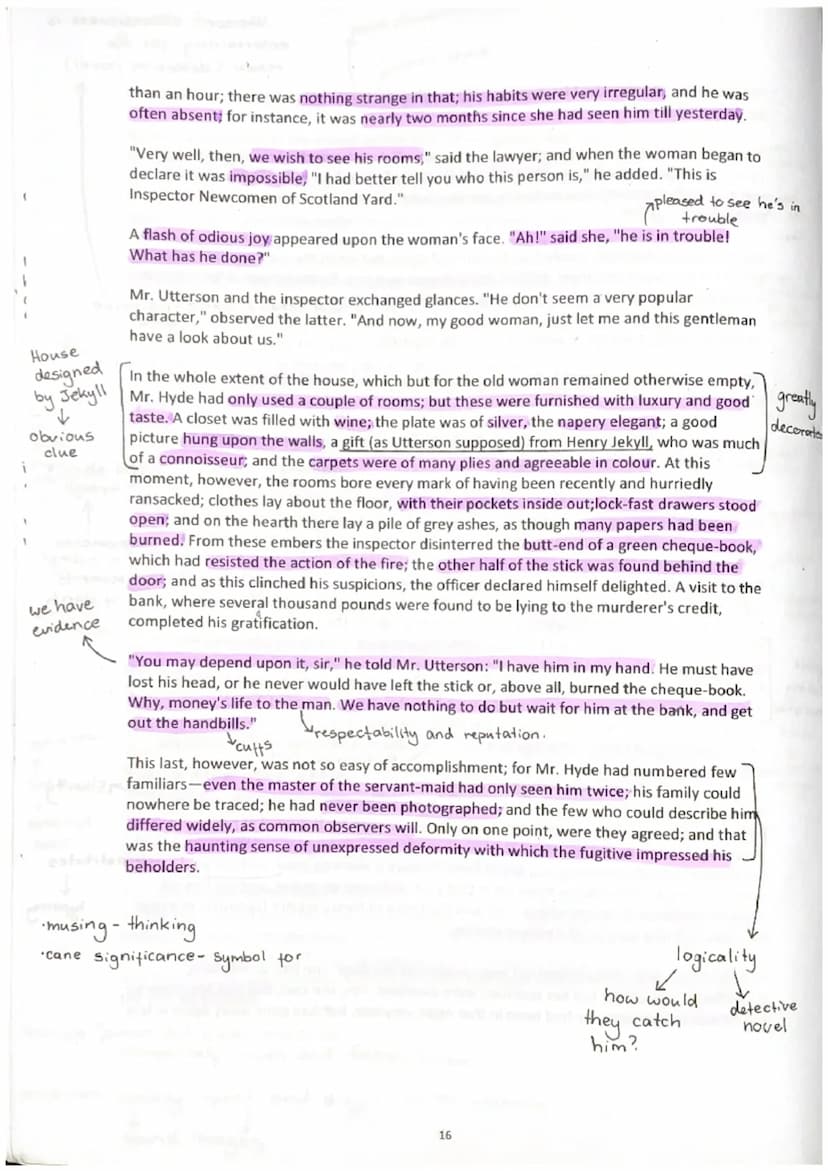 than an hour; there was nothing strange in that; his habits were very irregular, and he was
often absent; for instance, it was nearly two months since she had seen him till yesterday.
"Very well, then, we wish to see his rooms," said the lawyer; and when the woman began to
declare it was impossible, "I had better tell you who this person is," he added. "This is
Inspector Newcomen of Scotland Yard."
pleased to see he's in
trouble
A flash of odious joy appeared upon the woman's face. "Ah!" said she, "he is in trouble!
What has he done?"
Mr. Utterson and the inspector exchanged glances. "He don't seem a very popular
character," observed the latter. "And now, my good woman, just let me and this gentleman
have a look about us."
House
designed
by Jekyll
obvious
clue
In the whole extent of the house, which but for the old woman remained otherwise empty,
Mr. Hyde had only used a couple of rooms; but these were furnished with luxury and good
taste. A closet was filled with wine; the plate was of silver, the napery elegant; a good
picture hung upon the walls, a gift (as Utterson supposed) from Henry Jekyll, who was much
of a connoisseur; and the carpets were of many plies and agreeable in colour. At this
moment, however, the rooms bore every mark of having been recently and hurriedly
ransacked; clothes lay about the floor, with their pockets inside out;lock-fast drawers stood
open; and on the hearth there lay a pile of grey ashes, as though many papers had been
burned. From these embers the inspector disinterred the butt-end of a green cheque-book,
which had resisted the action of the fire; the other half of the stick was found behind the
door; and as this clinched his suspicions, the officer declared himself delighted. A visit to the
bank, where several thousand pounds were found to be lying to the murderer's credit,
completed his gratification.
greatly
we have
evidence
"You may depend upon it, sir," he told Mr. Utterson: "I have him in my hand. He must have
lost his head, or he never would have left the stick or, above all, burned the cheque-book.
Why, money's life to the man. We have nothing to do but wait for him at the bank, and get
out the handbills."
respectability and reputation.
cuffs
This last, however, was not so easy of accomplishment; for Mr. Hyde had numbered few
familiars—even the master of the servant-maid had only seen him twice; his family could
nowhere be traced; he had never been photographed; and the few who could describe him
differed widely, as common observers will. Only on one point, were they agreed; and that
was the haunting sense of unexpressed deformity with which the fugitive impressed his
beholders.
·musing - thinking
·cane significance- symbol for
logicality
how would
they catch
him?
detective
novel
16